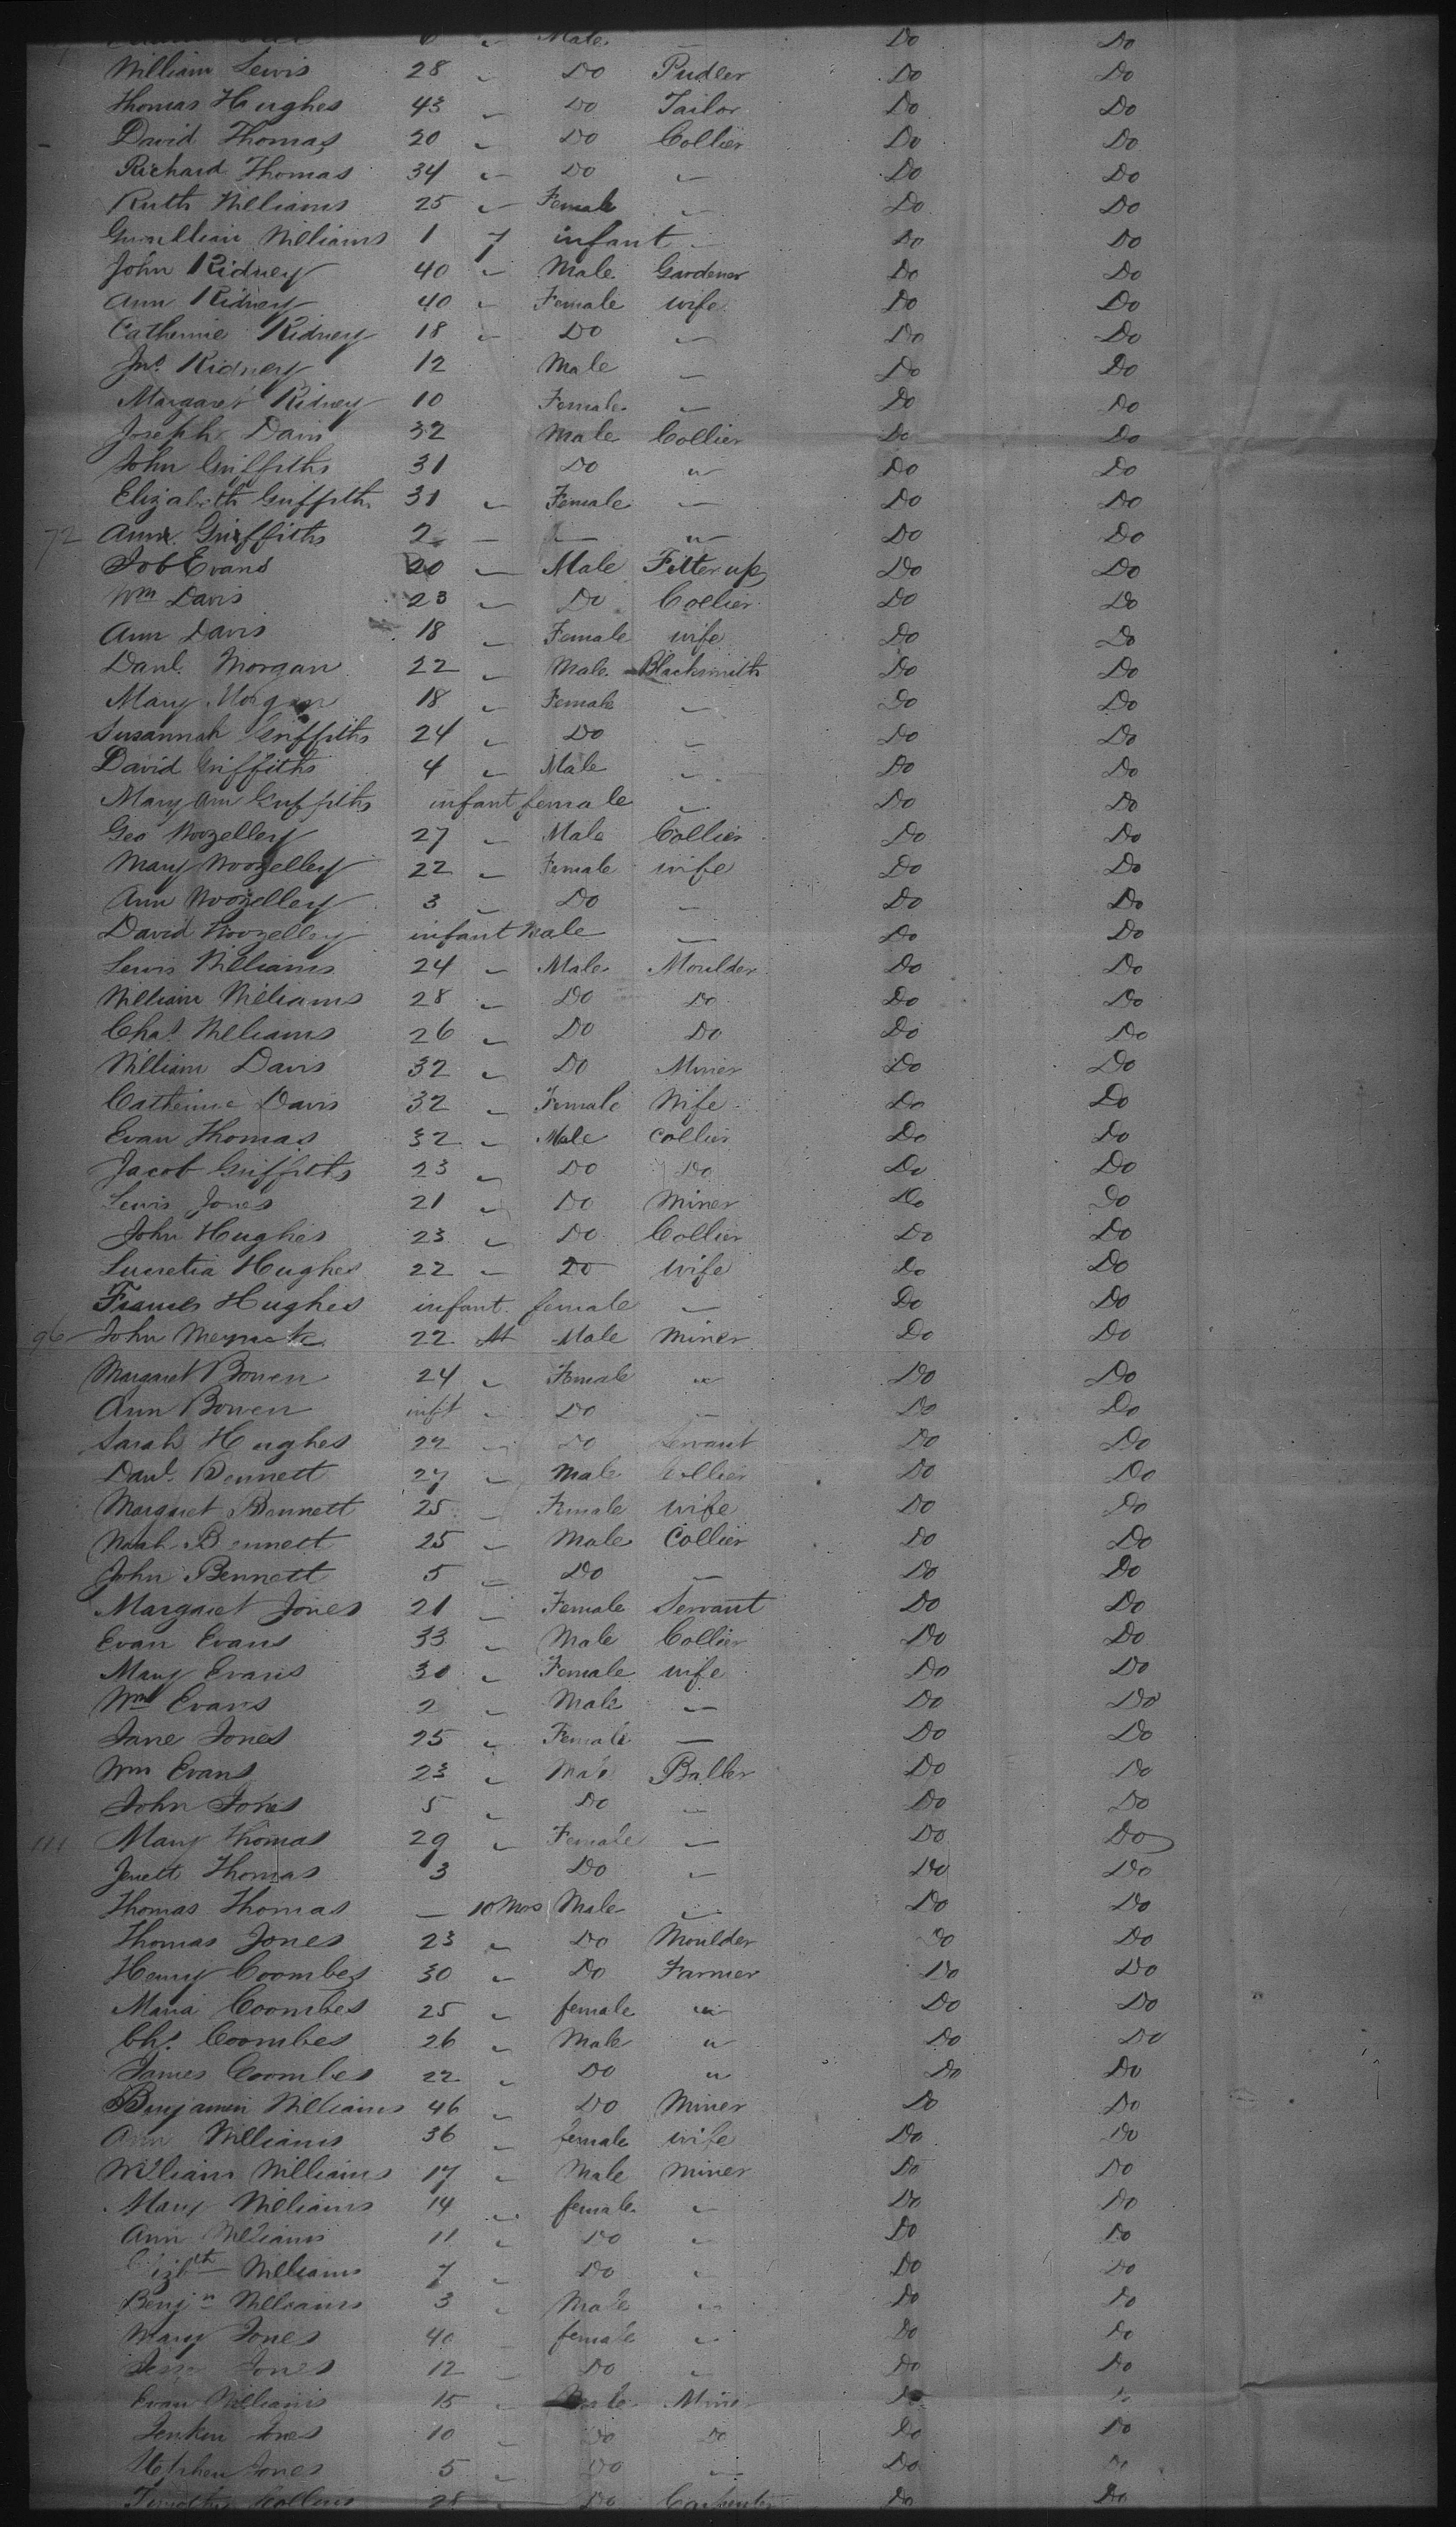 6 " Male " Do Do
William Lewis 28 " Do Pudler Do Do
Thomas Hughes 43 " Do Tailor Do Do
David Thomas 20 " Do Collier Do Do
Richard Thomas 34 " Do " Do Do
Ruth Williams 25 " Female " Do Do
Gwenllian Williams 1 7 infant " Do Do
John Kidney 40 " Male Gardener Do Do
Ann Kidney 40 " Female wife Do Do
Catherine Kidney 18 " Do " Do Do
Jno. Kidney 12 Male " Do Do
Margaret Kidney 10 Female " Do Do
Joseph Davis 32 Male Collier Do Do
John Griffiths 31 Do " Do Do
Elizabeth Griffiths 31 " Female " Do Do
72 Ann Griffiths 2 " " " Do Do
Job Evans 20 " Male Fitter up Do Do
Wm Davis 23 " Do Collier Do Do
Ann Davis 18 " Female wife Do Do
Danl. Morgan 22 " Male Blacksmith Do Do
Mary Morgan 18 " Female " Do Do
Susannah Griffiths 24 " Do " Do Do
David Griffiths 4 " Male " Do Do
Mary Ann Griffiths infant female " Do Do
Geo Woozelley 27 " Male Collier Do Do
Mary Woozelley 22 " Female wife Do Do
Ann Woozelley 3 " Do " Do Do
David Woozelley infant Male " Do Do
Lewis Williams 24 " Male Moulder Do Do
William Williams 28 " Do Do Do Do
Chas. Williams 26 " Do Do Do Do
William Davis 32 " Do Miner Do Do
Catherine Davis 32 " Female Wife Do Do
Evan Thomas 32 " Male Collier Do Do
Jacob Griffiths 23 " Do Do Do Do
Lewis Jones 21 " Do Miner Do Do
John Hughes 23 " Do Collier Do Do
Lucretia Hughes 22 " Do wife Do Do
Frances Hughes infant female " Do Do
96 John 22 Male Miner Do Do
Margaret Bowen 24 " Female " Do Do
Ann Bowen inft " Do " Do Do
Sarah Hughes 22 " Do Servant Do Do
Danl. Bennett 27 " Male Collier Do Do
Margaret Bennett 25 " Female wife Do Do
Noah Bennett 25 " Male Collier Do Do
John Bennett 5 " Do " Do Do
Margaret Jones 21 " Female Servant Do Do
Evan Evans 33 " Male Collier Do Do
Mary Evans 30 " Female wife Do Do
Wm Evans 2 " Male " Do Do
Jane Jones 25 " Female " Do Do
Wm Evans 23 " Male Baller Do Do
John Jones 5 " Do " Do Do
111 Mary Thomas 29 " Female " Do Do
Jenett Thomas 3 Do " Do Do
Thomas Thomas — 10 Mos Male " Do Do
Thomas Jones 23 " Do Moulder Do Do
Henry Coombes 30 " Do Farmer Do Do
Maria Coombes 25 " female " Do Do
Chs. Coombes 26 " Male " Do Do
James Coombes 22 " Do " Do Do
Benjamin Williams 46 " Do Miner Do Do
Ann Williams 36 " female wife Do Do
William Williams 17 " Male Miner Do Do
Mary Williams 14 " female " Do Do
Ann Williams 11 " Do " Do Do
Elizbth Williams 7 " Do " Do Do
Benjn Williams 3 " Male " Do Do
Mary Jones 40 " female " Do Do
Jones 12 " Do " Do Do
Evan Williams 15 " Male Miner Do Do
Jenkin Jones 10 " Do Do Do Do
Stephen Jones 5 " Do " Do Do
Timothy Collins 28 " Do Carpenter Do Do